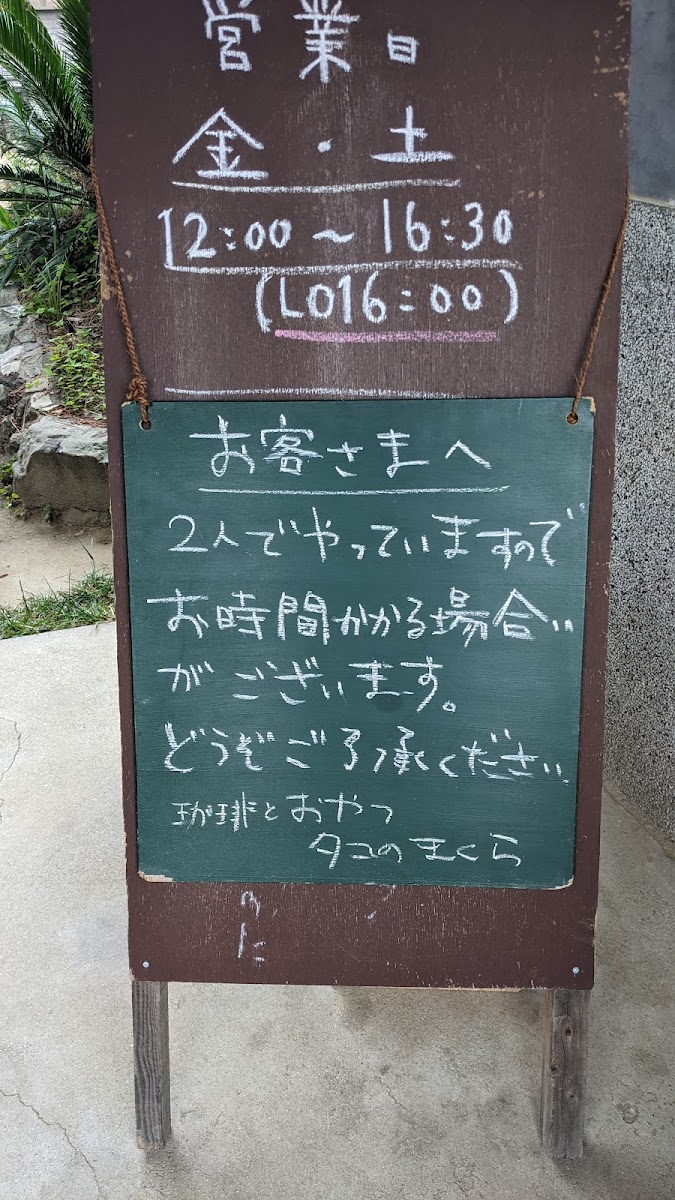 営業日
金・土
12:00〜16:30
(LO16:00)
お客さまへ
2人でやっていますので
お時間かかる場合い
がございます。
どうぞごろう承ください
珈琲とおやつ
タコのまくら